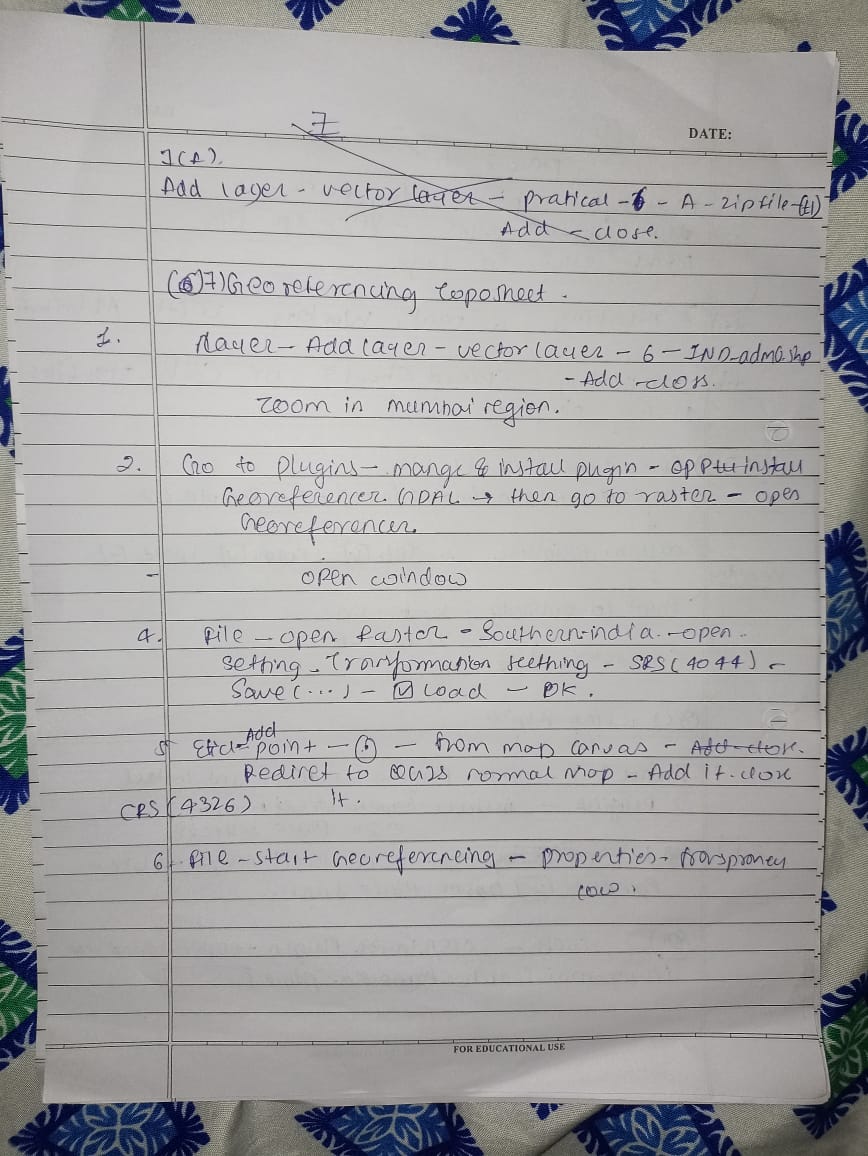 7
DATE:
7(A).
Add layer - vector layer - pratical - 6 - A - zip file -
Add - close.
(6)7) Georeferencing toposheet.
1. Layer - Add layer - vector layer - 6 - IND_adm0.shp
- Add - clos.
zoom in mumbai region.
2. Go to plugins - mange & install pugin - install
Georeferencer GDAL → then go to raster - open
Georeferencer.
- open window
4. File - open Raster - Southern-india. - open.
setting - Tranformation seething - SRS (4044) -
Save (...) - ☑ Load - OK.
5 Add
point - - from map canvas - Add - clos.
Rediret to normal map - Add it. clos
CRS (4326) It.
6. File - start Georeferencing - properties - transproney
low.
FOR EDUCATIONAL USE